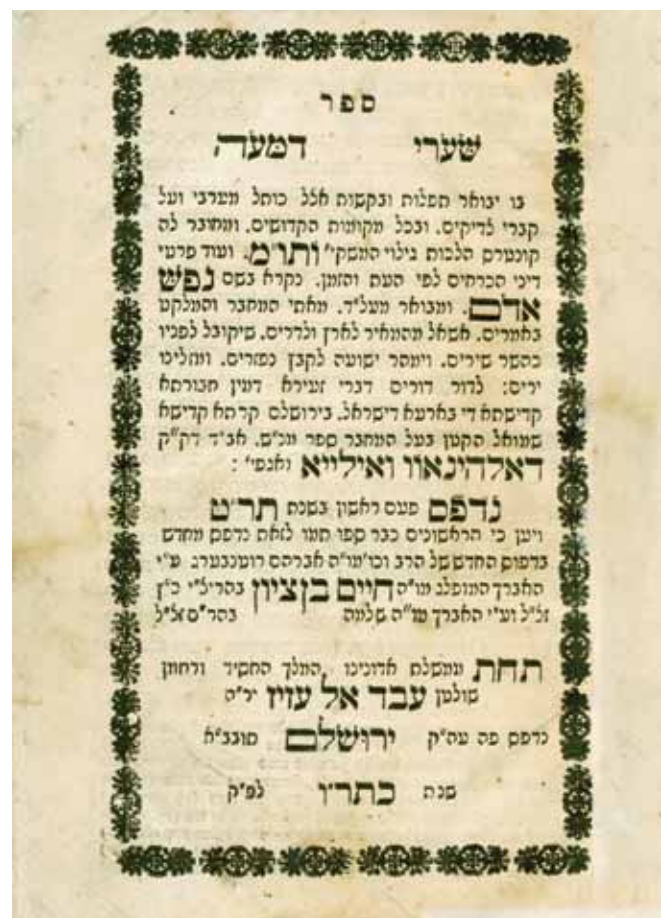 ספר
שערי דמעה
בו יבואר תפלות ובקשות אצל כותל מערבי ועל
קברי צדיקים. ובכל מקומות הקדושים. ומחובר לה
קונטרס הלכות גילוי המשקי' ותו"מ. ועוד פרטי
דיני הכרחים לפי העת והזמן. נקרא בשם נפש
אדם. ומבואר מעל"ד. מאתי המחבר והמלקט
באמרים. אשאל מהמאיר לארץ ולדרים. שיקובל לפניו
כתשר שירים. וימהר ישועה לקבץ נפזרים. ומזלינו
ירים: לדור דורים דברי זעירא דמין חבורתא
קדישתא די בארעא דישראל. בירושלם קרתא קדישא
שמואל הקטן בעל המחבר ספר מנ"ש. אב"ד דק"ק
דאלהינאוו ואילייא ואגפי':
נדפס פעם ראשון בשנת תר"ט
ויען כי הראשונים כבר ספו תמו לזאת נדפס מחדש
בדפוס החדש של הרב וכו' מו"ה אברהם רוטנבערג. ע"י
האברך המופלג מו"ה חיים בן ציון בהרי"ל כ"ץ
זל"ל וע"י האברך מו"ה שלמה בהר"ם זל"ל
תחת ממשלת אדונינו המלך החסיד ורחמן
שולטן עבד אל עזיז יר"ה
נדפס פה עה"ק ירושלם תובב"א
שנת כתר"ו לפ"ק